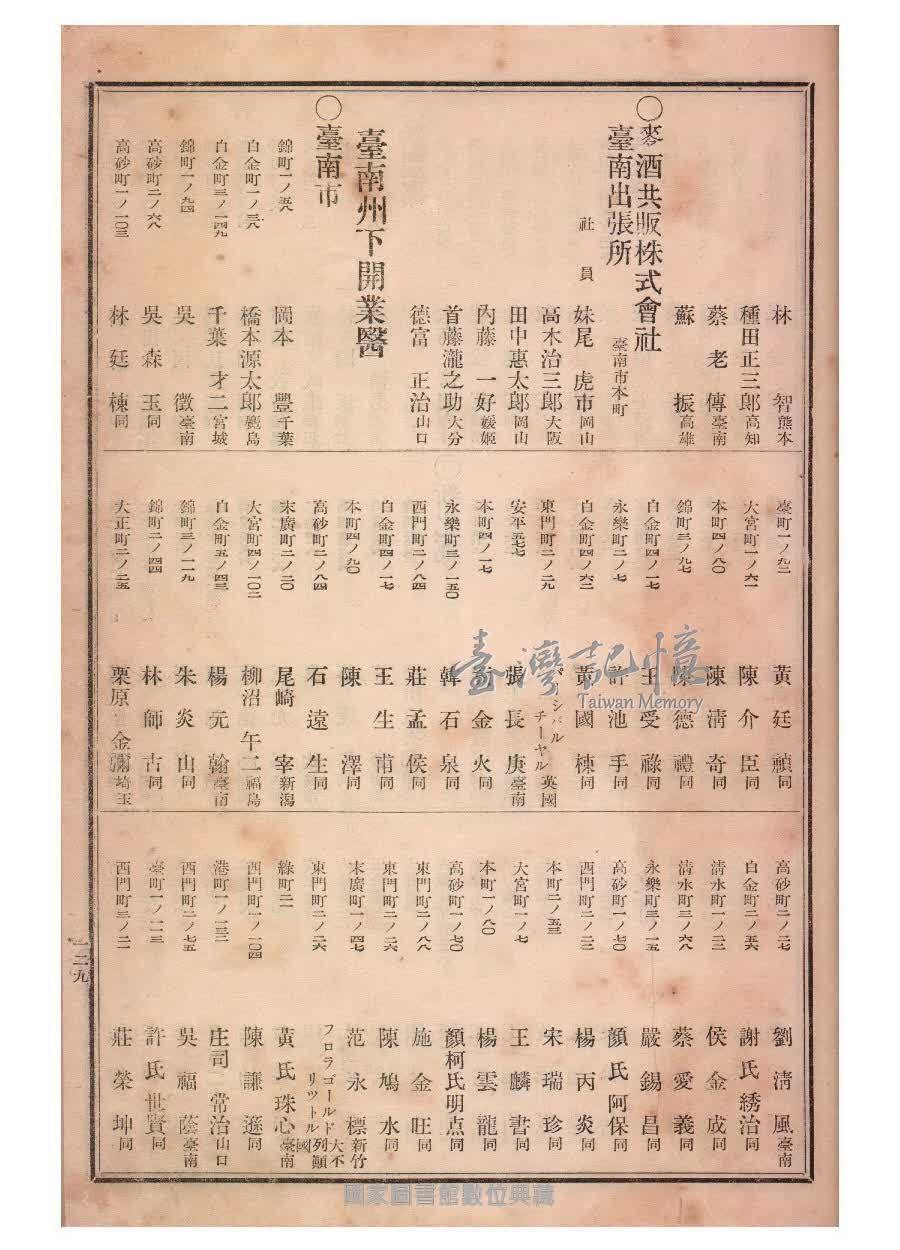 林智 熊本
種田正三郎 高知
蔡老傳 臺南
蘇振 高雄
○麥酒共販株式會社
臺南出張所 臺南市本町
社員 妹尾虎市 岡山
高木治三郎 大阪
田中惠太郎 岡山
內藤一好 媛姬
首藤瀧之助 大分
德富正治 山口
臺南州下開業醫
○臺南市
錦町一ノ五八 岡本豐 千葉
白金町一ノ三八 橋本源太郎 鹿島
白金町三ノ一四九 千葉才二 宮城
錦町一ノ九四 吳徵 臺南
高砂町二ノ六八 吳森玉 同
高砂町一ノ一〇三 林廷棟 同
臺町一ノ九二 黃廷禎 同
大宮町一ノ六一 陳介臣 同
本町四ノ八〇 陳清奇 同
錦町三ノ九七 陳德禮 同
白金町四ノ一七 王受祿 同
永樂町二ノ七 許池手 同
白金町四ノ六二 黃國棟 同
東門町二ノ二九 パーシバルチーヤル 英國
安平五七七 張長庚 臺南
本町四ノ一七 金火 同
永樂町三ノ一五〇 韓石泉 同
西門町二ノ八四 莊孟侯 同
白金町四ノ一七 王生甫 同
本町四ノ九〇 陳澤 同
高砂町二ノ八四 石遠生 同
末廣町二ノ二〇 尾崎宰 新潟
大宮町四ノ一〇二 柳沼午二 福島
白金町五ノ四三 楊元翰 臺南
錦町三ノ一一九 朱炎山 同
錦町二ノ四四 林師古 同
大正町二ノ二五 栗原金彌 埼玉
高砂町二ノ二七 劉清風 臺南
白金町二ノ五六 謝氏綉治 同
清水町一ノ二三 侯金成 同
清水町三ノ六八 蔡愛義 同
永樂町三ノ一五 嚴錫昌 同
高砂町一ノ七〇 顏氏阿保 同
西門町二ノ二二 楊丙炎 同
本町二ノ五三 宋瑞珍 同
大宮町一ノ七 王麟書 同
本町一ノ八〇 楊雲龍 同
高砂町一ノ七〇 顏柯氏明点 同
東門町二ノ八八 施金旺 同
東門町二ノ二六 陳鳩水 同
末廣町一ノ四七 范永標 新竹
東門町二ノ二六 フロラゴールドリツトル 大不列顛國
綠町二二 黃氏珠心 臺南
西門町一ノ一〇四 陳謙遜 同
港町一ノ一三二 庄司常治 山口
西門町二ノ七五 吳福蔭 臺南
臺町一ノ一二三 許氏世賢 同
西門町三ノ二一 莊榮坤 同
一二九
臺灣記憶
Taiwan Memory
國家圖書館數位典藏